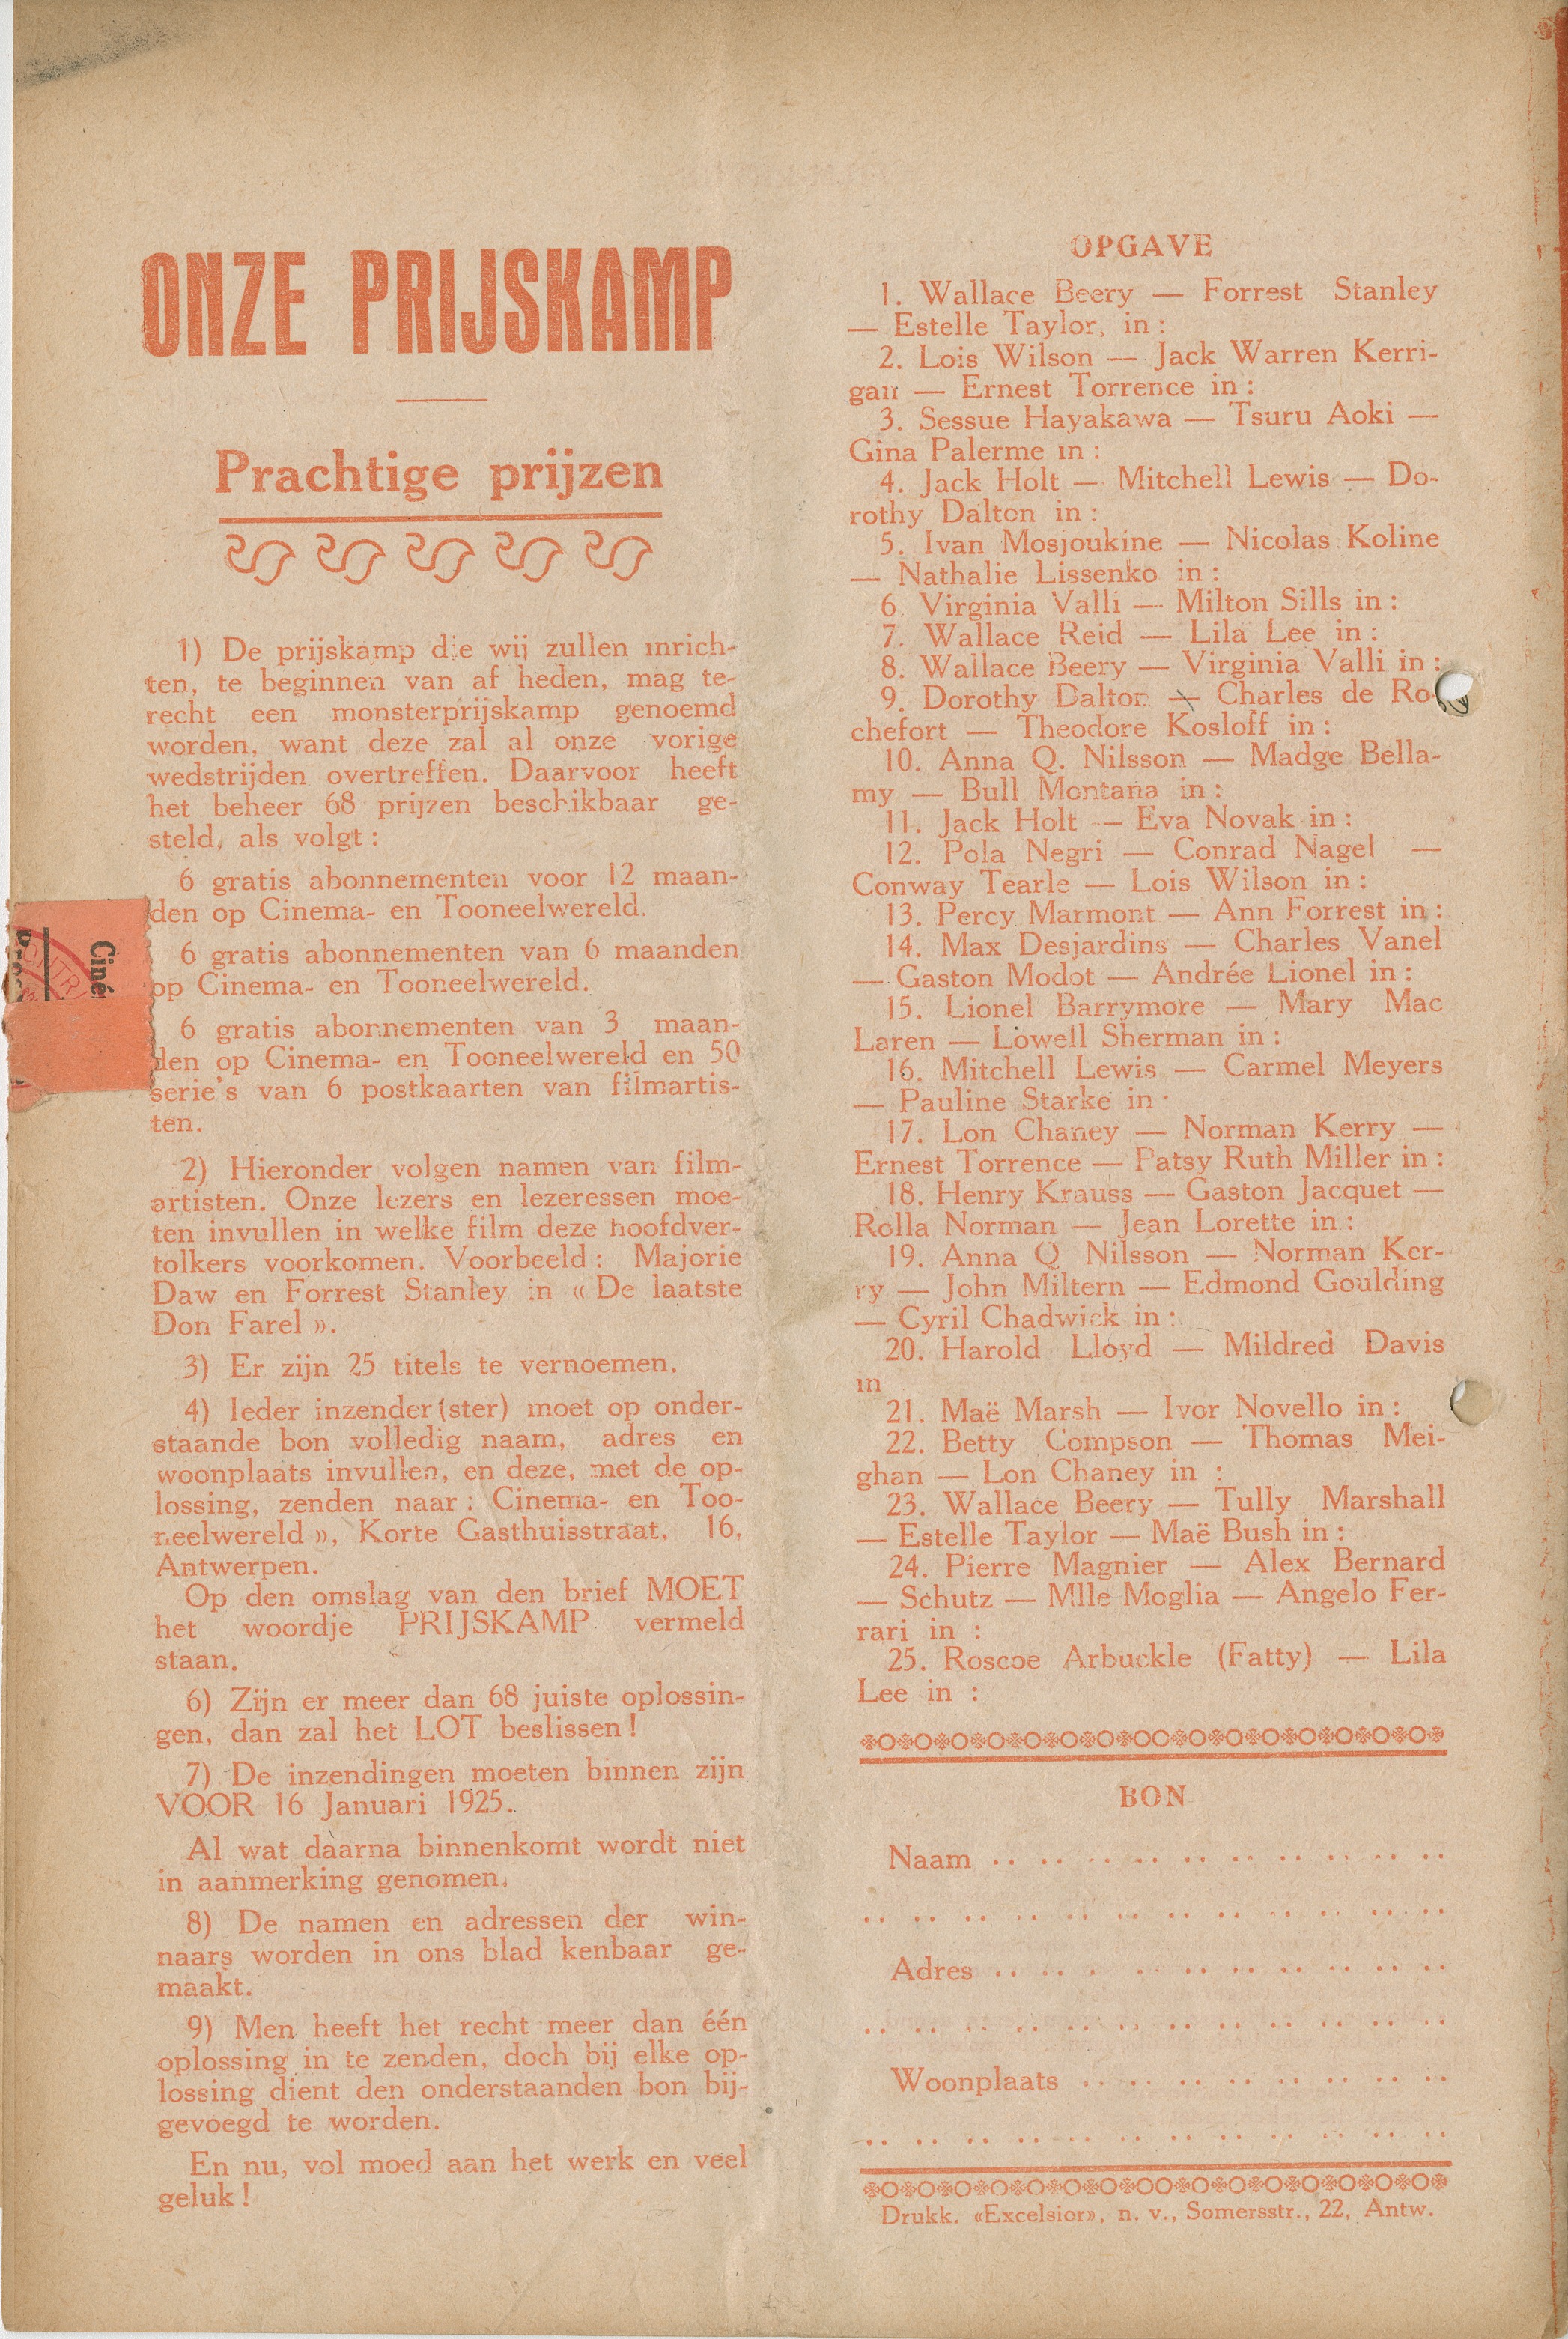 ONZE PRIJSKAMP
Prachtige prijzen
1) De prijskamp die wij zullen inrich-
ten, te beginnen van af heden, mag te-
recht een monsterprijskamp genoemd
worden, want deze zal al onze vorige
wedstrijden overtreffen. Daarvoor heeft
het beheer 68 prijzen beschikbaar ge-
steld, als volgt :
6 gratis abonnementen voor 12 maan-
den op Cinema- en Tooneelwereld.
6 gratis abonnementen van 6 maanden
op Cinema- en Tooneelwereld.
6 gratis abonnementen van 3 maan-
den op Cinema- en Tooneelwereld en 50
serie's van 6 postkaarten van filmartis-
ten.
2) Hieronder volgen namen van film-
artisten. Onze lezers en lezeressen moe-
ten invullen in welke film deze hoofdver-
tolkers voorkomen. Voorbeeld : Majorie
Daw en Forrest Stanley in « De laatste
Don Farel ».
3) Er zijn 25 titels te vernoemen.
4) Ieder inzender(ster) moet op onder-
staande bon volledig naam, adres en
woonplaats invullen, en deze, met de op-
lossing, zenden naar : Cinema- en Too-
neelwereld », Korte Gasthuisstraat, 16,
Antwerpen.
Op den omslag van den brief MOET
het woordje PRIJSKAMP vermeld
staan.
6) Zijn er meer dan 68 juiste oplossin-
gen, dan zal het LOT beslissen !
7) De inzendingen moeten binnen zijn
VOOR 16 Januari 1925.
Al wat daarna binnenkomt wordt niet
in aanmerking genomen.
8) De namen en adressen der win-
naars worden in ons blad kenbaar ge-
maakt.
9) Men heeft het recht meer dan één
oplossing in te zenden, doch bij elke op-
lossing dient den onderstaanden bon bij-
gevoegd te worden.
En nu, vol moed aan het werk en veel
geluk !
Ciné
OPGAVE
1. Wallace Beery — Forrest Stanley
— Estelle Taylor, in :
2. Lois Wilson — Jack Warren Kerri-
gan — Ernest Torrence in :
3. Sessue Hayakawa — Tsuru Aoki —
Gina Palerme in :
4. Jack Holt — Mitchell Lewis — Do-
rothy Dalton in :
5. Ivan Mosjoukine — Nicolas Koline
— Nathalie Lissenko in :
6. Virginia Valli — Milton Sills in :
7. Wallace Reid — Lila Lee in :
8. Wallace Beery — Virginia Valli in :
9. Dorothy Dalton — Charles de Ro-
chefort — Theodore Kosloff in :
10. Anna Q. Nilsson — Madge Bella-
my — Bull Montana in :
11. Jack Holt — Eva Novak in :
12. Pola Negri — Conrad Nagel —
Conway Tearle — Lois Wilson in :
13. Percy Marmont — Ann Forrest in :
14. Max Desjardins — Charles Vanel
— Gaston Modot — Andrée Lionel in :
15. Lionel Barrymore — Mary Mac
Laren — Lowell Sherman in :
16. Mitchell Lewis — Carmel Meyers
— Pauline Starke in :
17. Lon Chaney — Norman Kerry —
Ernest Torrence — Patsy Ruth Miller in :
18. Henry Krauss — Gaston Jacquet —
Rolla Norman — Jean Lorette in :
19. Anna Q Nilsson — Norman Ker-
ry — John Miltern — Edmond Goulding
— Cyril Chadwick in :
20. Harold Lloyd — Mildred Davis
in
21. Maë Marsh — Ivor Novello in :
22. Betty Compson — Thomas Mei-
ghan — Lon Chaney in :
23. Wallace Beery — Tully Marshall
— Estelle Taylor — Maë Bush in :
24. Pierre Magnier — Alex Bernard
— Schutz — Mlle Moglia — Angelo Fer-
rari in :
25. Roscoe Arbuckle (Fatty) — Lila
Lee in :
BON
Naam
Adres
Woonplaats
Drukk. «Excelsior», n. v., Somersstr., 22, Antw.